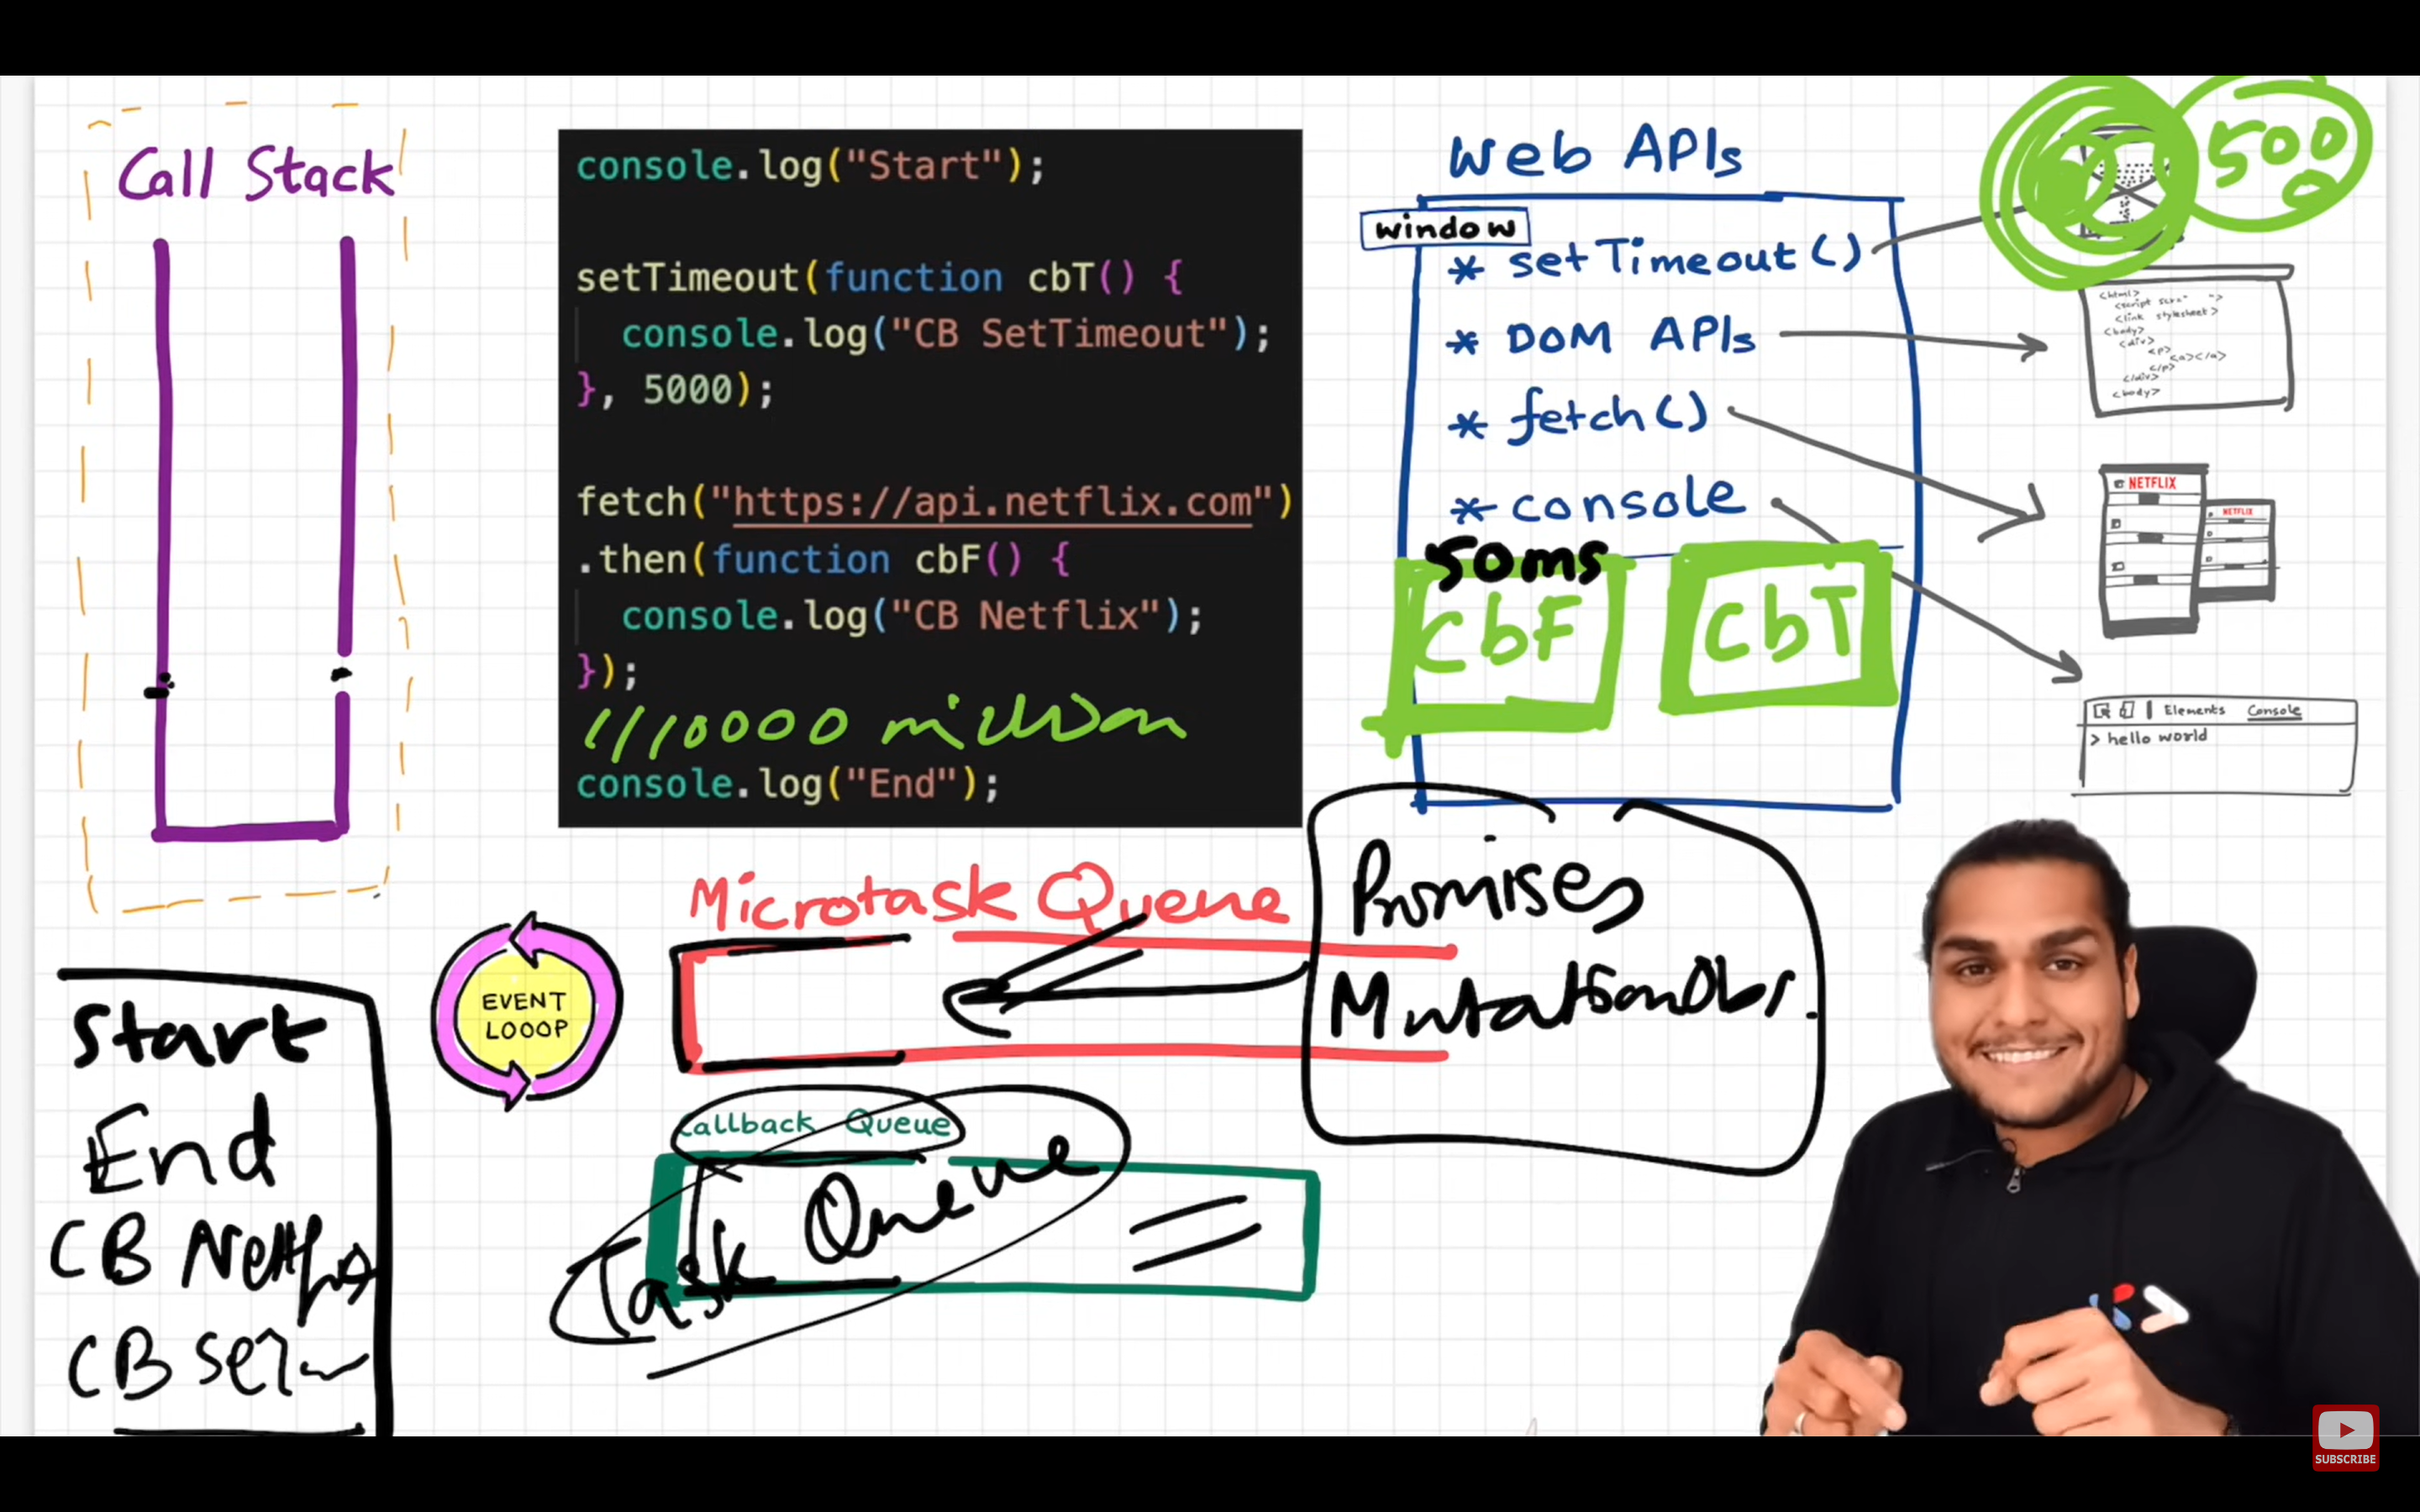 Call Stack
console.log("Start");
setTimeout(function cbT() {
console.log("CB SetTimeout");
}, 5000);
fetch("https://api.netflix.com")
.then(function cbF() {
console.log("CB Netflix");
});
//10000 million
console.log("End");
Web APIs
window
* setTimeout()
* DOM APIs
* fetch()
* console
50ms
CbF
CbT
500
<html>
<link stylesheet>
<body>
<div>
<p>
<a></a>
</p>
</div>
<body>
NETFLIX
NETFLIX
Elements Console
> hello world
Microtask Queue
Promises
MutationObs.
EVENT
LOOOP
Callback Queue
Task Queue
Start
End
CB Netflix
CB Set
SUBSCRIBE